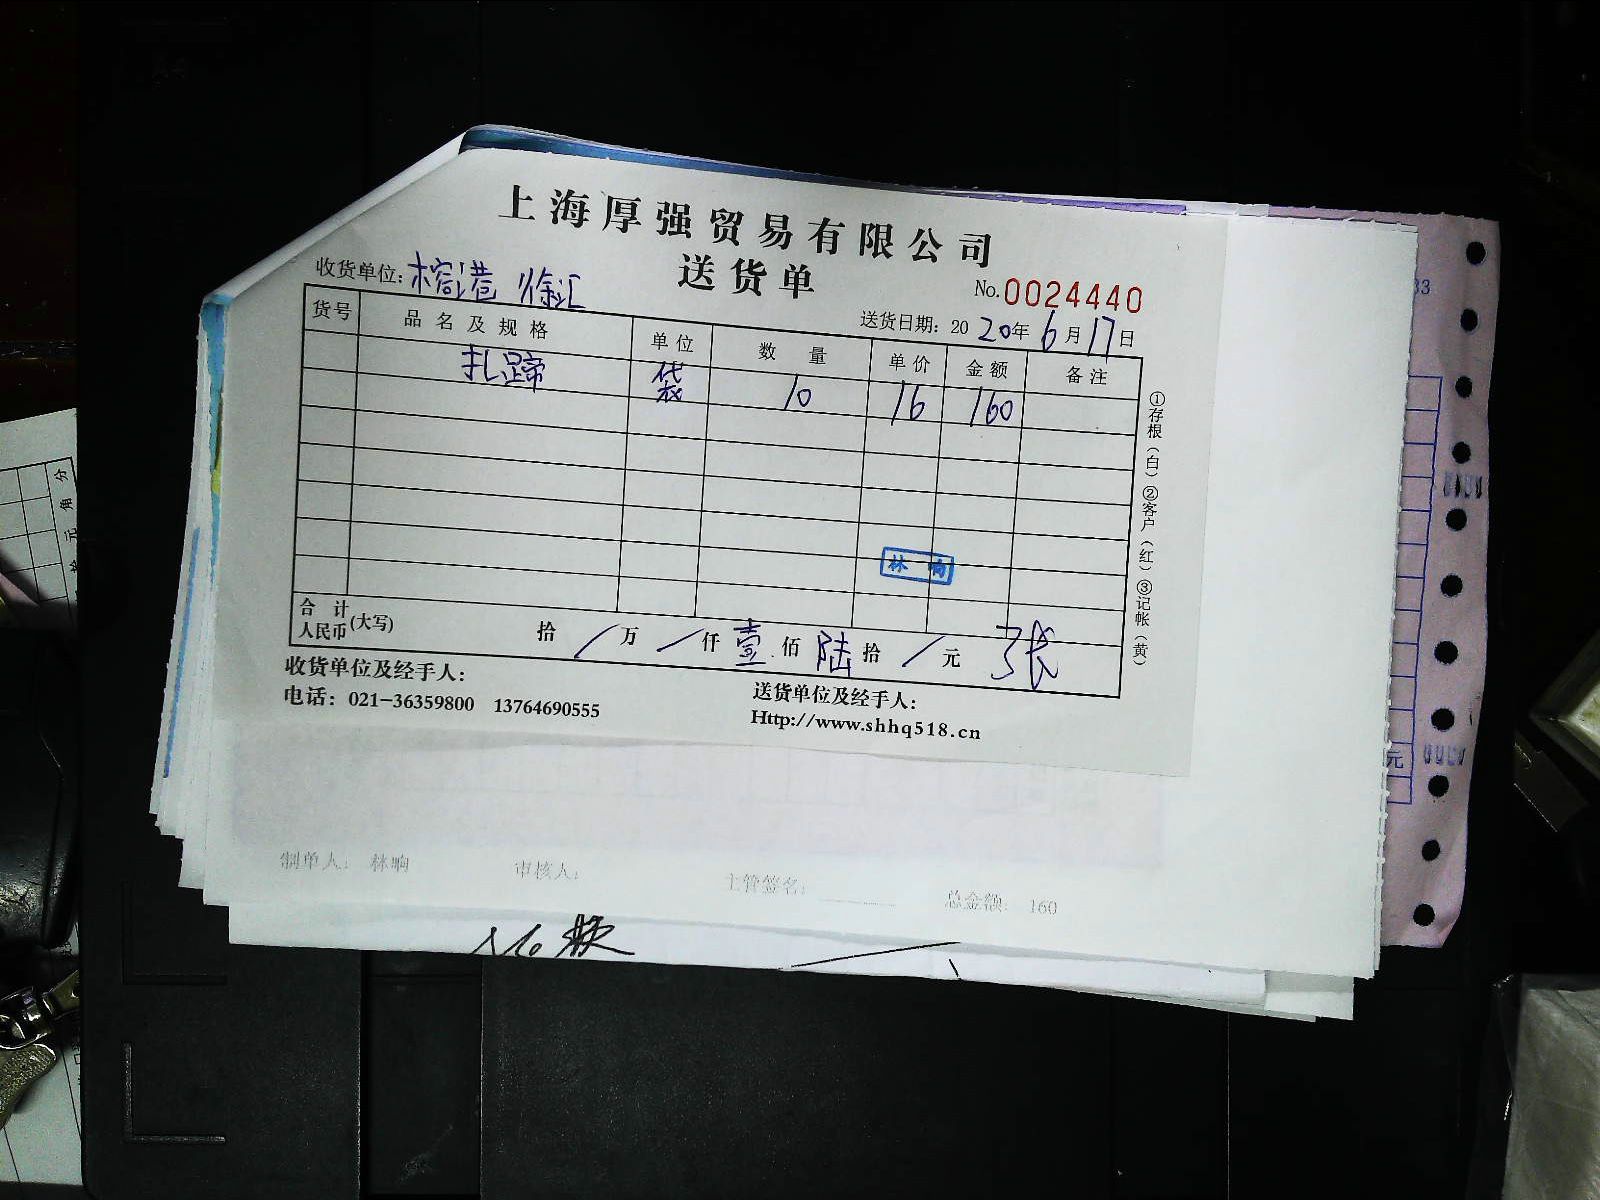 上海厚强贸易有限公司
送货单
No.0024440
收货单位:榕港 徐汇
送货日期: 2020年6月17日
货号 品名及规格 单位 数量 单价 金额 备注
扎蹄 袋 10 16 160
①存根(白)②客户(红)③记帐(黄)
林 响
合计人民币(大写) 拾/万/仟壹佰陆拾/元 张
收货单位及经手人:
送货单位及经手人:
电话: 021-36359800 13764690555
Http://www.shhq518.cn
制单人: 林响 审核人: 主管签名: 总金额: 160
33
元
分
角
元